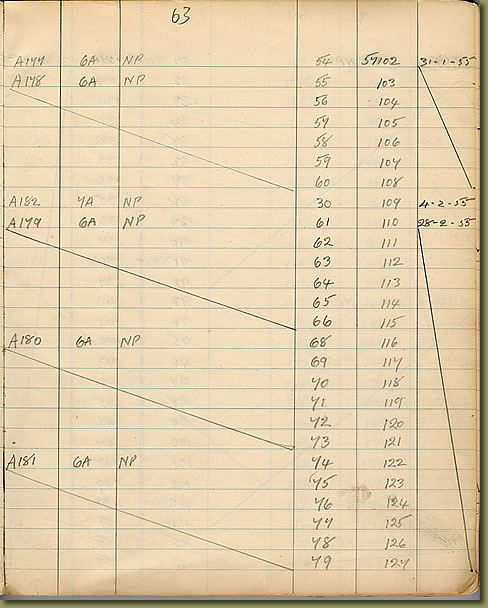 63
A177 6A NP 54 57102 31-1-55
A178 6A NP 55 103
56 104
57 105
58 106
59 107
60 108
A182 7A NP 30 109 4-2-55
A179 6A NP 61 110 28-2-55
62 111
63 112
64 113
65 114
66 115
A180 6A NP 68 116
69 117
70 118
71 119
72 120
73 121
A181 6A NP 74 122
75 123
76 124
77 125
78 126
79 127